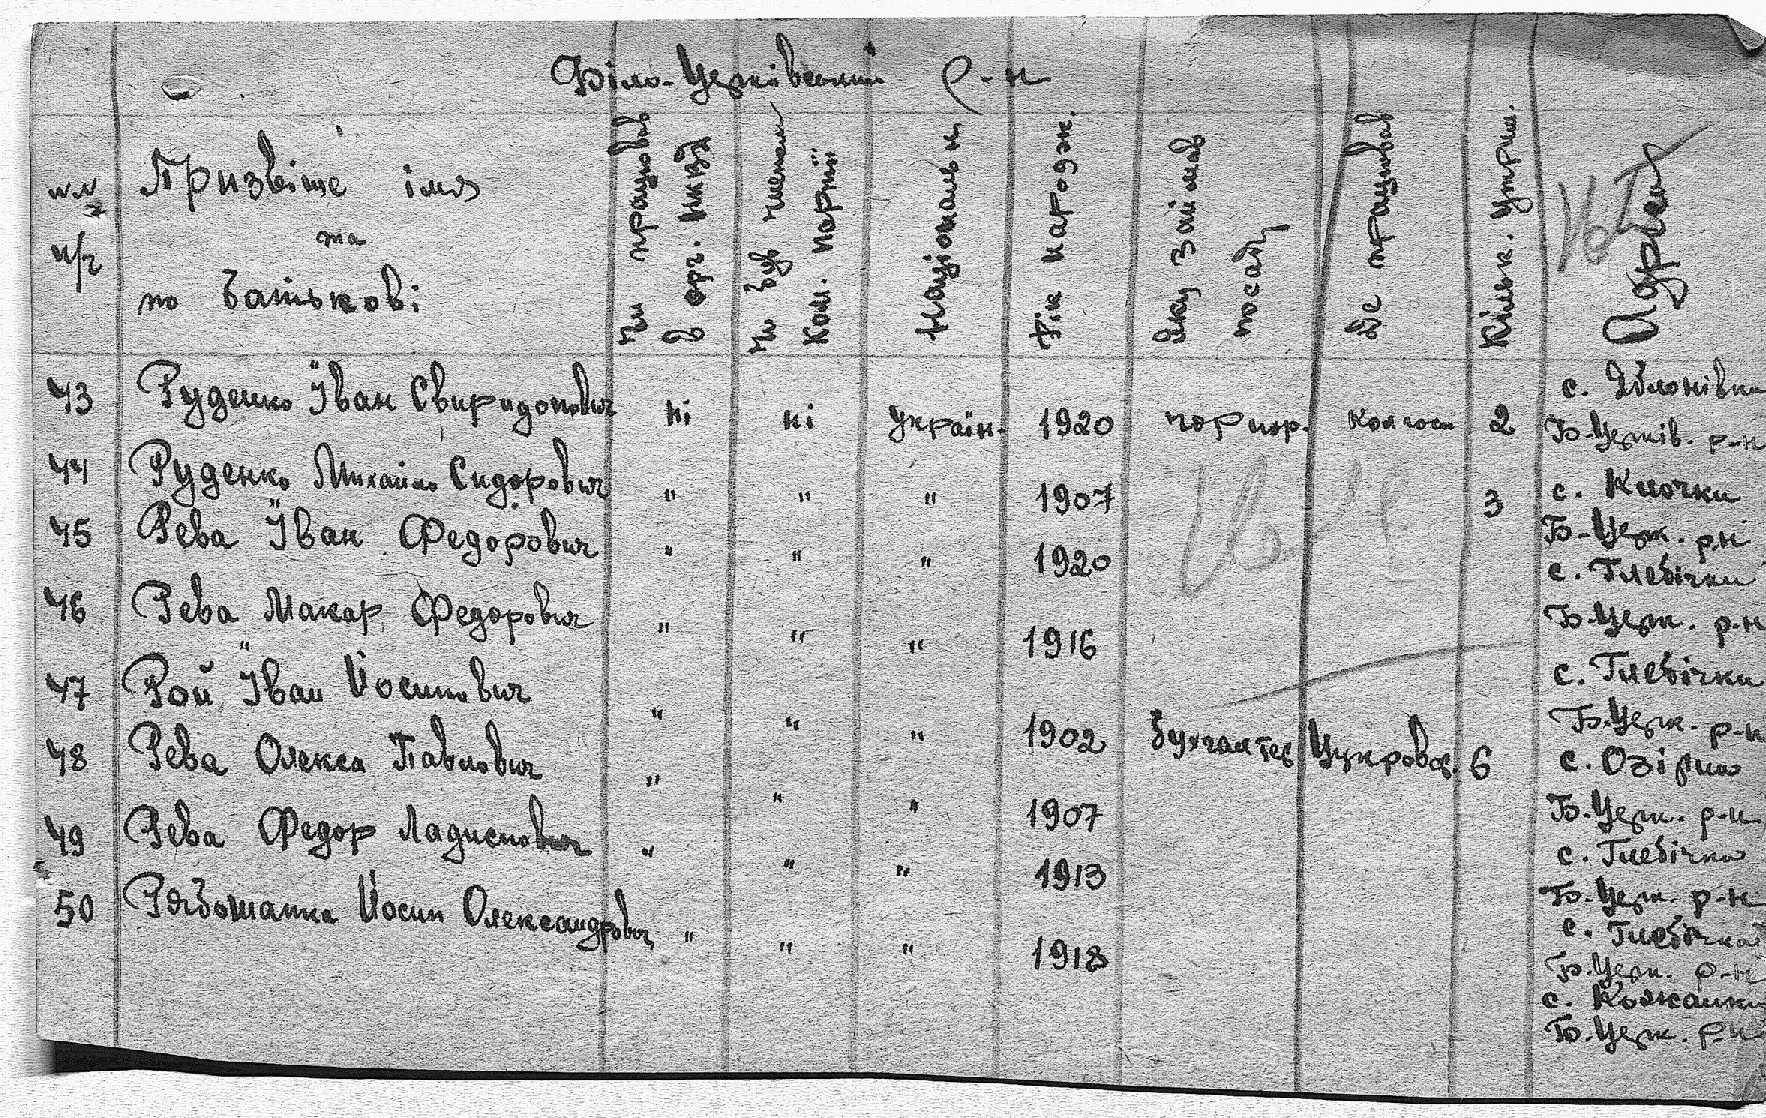 Біло-Церківський р-н
№№ п/г
Призвіще імя
та
по батькові
Чи працював в орг. НКВД
Чи був членом Ком. Партії
Національн
Рік народж.
Яку займав посаду
Де працював
Кільк. Утрим.
Адреса
43 Руденко Іван Свиридонович ні ні україн. 1920 чорнор. колгосп 2 с. Яблонівка
Б-Церків. р-н
44 Руденко Михайло Сидорович " " " 1907 3 с. Клочки
Б-Церк. р-н
45 Рева Іван Федорович " " " 1920 с. Глебічки
Б-Церк. р-н
46 Рева Макар Федорович " " " 1916 с. Глебічки
Б-Церк. р-н
47 Рой Іван Йосипович " " " 1902 бухгалтер Цукровов. 6 с. Озірна
Б.Церк. р-н
48 Рева Олекса Павлович " " " 1907 с. Глебічка
Б.Церк. р-н
49 Рева Федор " " " 1913 с. Глебічка
Б.Церк. р-н
50 Рябошапка Йосип Олександрович " " " 1918 с. Кожанки
Б.Церк. р-н